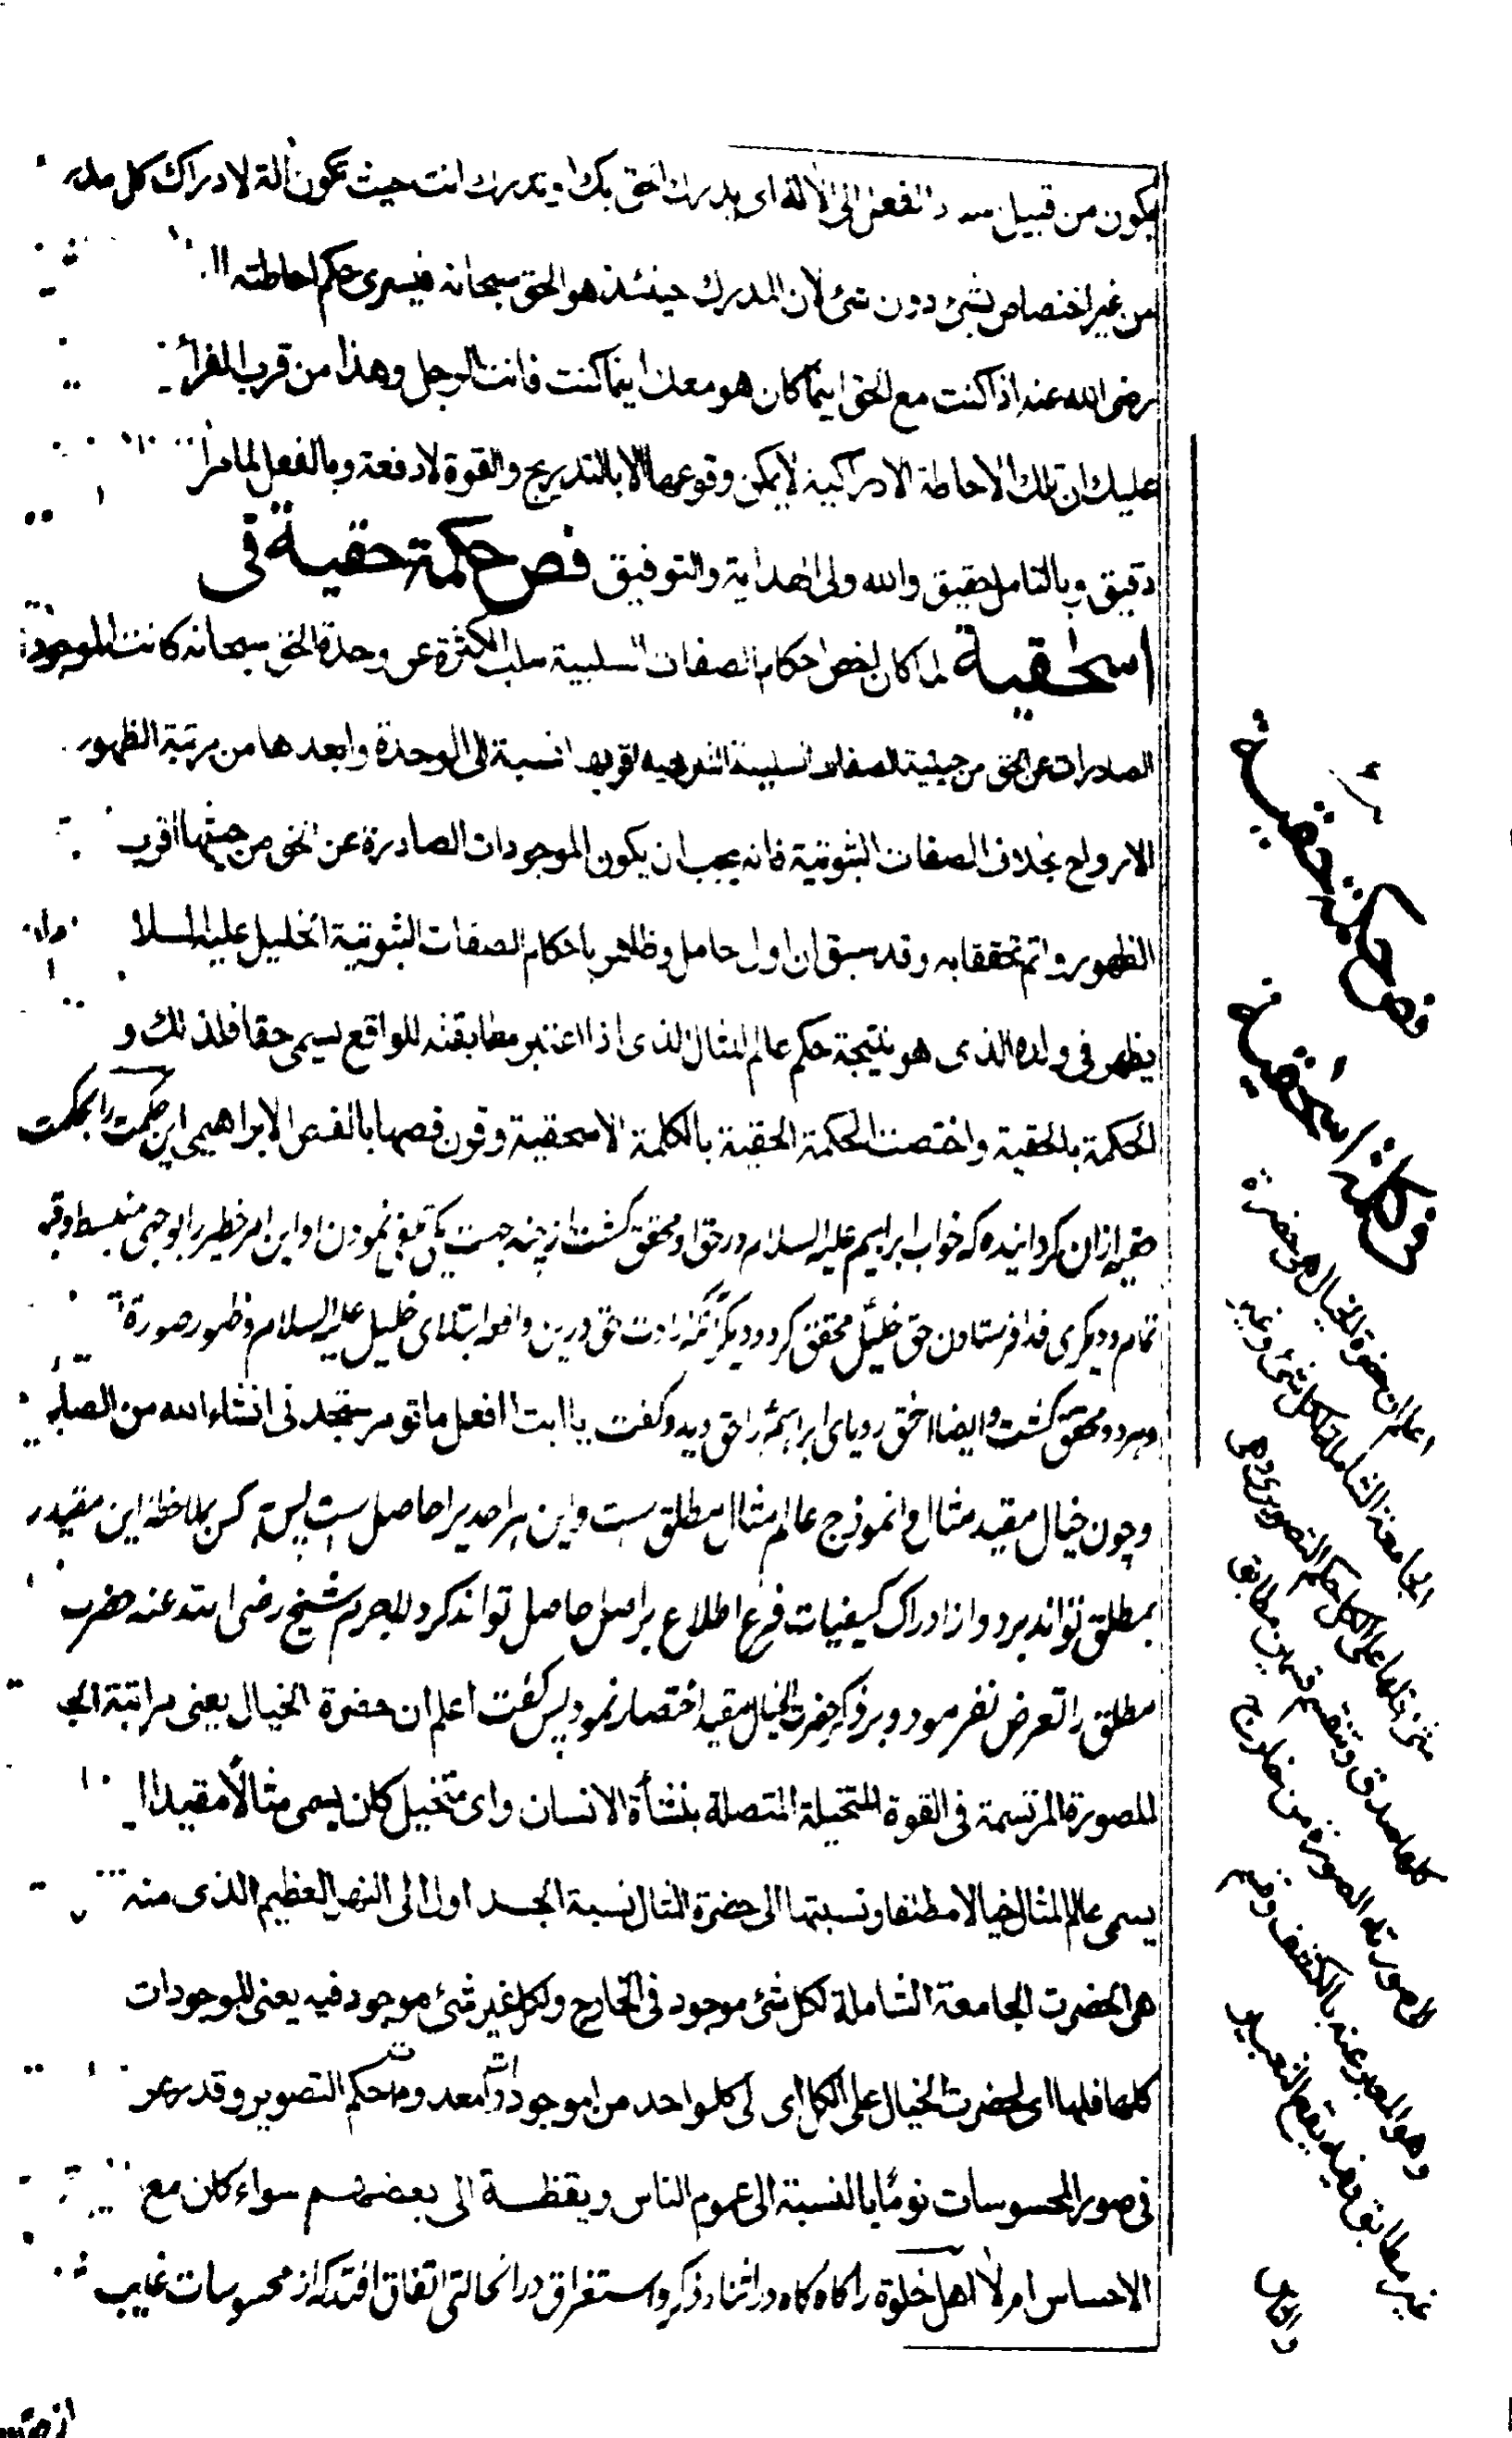 يكون من قبيل الفعل الى الآلة اى يدرك الحق بك او تدرك انت حيث تكون آلة لادراك كل
من غير اختصاص بشئ دون شئ لان المدرك حينئذ هو الحق سبحانه فيسرى حكم احاطته
رضى الله عنه اذا كنت مع الحق اينما كان هو معك اينما كنت فانت الرجل وهذا من قرب
عليك ان تلك الاحاطة الادراكية لا يمكن وقوعها الا بالتدريج والقوة لا دفعة وبالفعل
دقيق وبالتامل حقيق والله ولى الهداية والتوفيق فص حكمة حقية فى
اسحاقية لما كان اخص احكام الصفات السلبية سلب الكثرة عن وحدة الحق سبحانه كانت الموجودات
الصادرات عن الحق من حيثية الصفات السلبية نسبة الى الوحدة وابعدها من مرتبة الظهور
الارواح بخلاف الصفات الثبوتية فانه يجب ان يكون الموجودات الصادرة عن الحق من حيثها اقرب
الظهور واتم تحققا به وقد سبق ان اول حامل وظاهر باحكام الصفات الثبوتية الخليل عليه السلا
يظهر فى ولده الذى هو نتيجة حكم عالم المثال الذى اذا اعتبر مطابقته للواقع يسمى حقا فلذلك و
الحكمة بالحقية واختصت الحكمة الحقية بالكلمة الاسحقية وقرن فصها بالفص الابراهيمى اين حكمت را بحكمت
حقيه ازان كردانيده كه خواب ابراهيم عليه السلام در حق او محقق كشت از چند جهت يكى نمودن او اين امر خطير را بوجهى منبسط
تمام و ديكرى فدا فرستادن حق خليل محقق كرد و ديكر حق درين واقعه ابتلاى خليل عليه السلام وظهور صورة
محقق كشت وايضا اسحق روياى ابراهيم را حق ديد و كفت يا ابت افعل ما تؤمر ستجدنى انشاء الله من الصابر
و چون خيال مقيد مثال و انموذج عالم مثال مطلق ست و اين هر احد را حاصل ست پس كس بملاحظه اين مقيد
بمطلق تواند برد و از ادراك كيفيات فرع اطلاع بر اصل حاصل تواند كرد لاجرم شيخ رضى الله عنه حضرت
مطلق را تعرض نفرمود و بر ذكر حضرت الخيال مقيد اختصار نمود پس كفت اعلم ان حضرة الخيال يعنى مراتبة
للصورة المرتسمة فى القوة المتخيلة المتصلة بنشأة الانسان واى متخيل كان يسمى مثالا مقيدا
يسمى عالم المثال خيالا مطلقا ونسبتها الى حضرة المثال نسبة الجداول الى النهر العظيم الذى منه
هى الحضرت الجامعة الشاملة لكل شئ موجود فى الخارج ولكل غير شئ موجود فيه يعنى للموجودات
كلها فلها اى لحضرت الخيال على الكل اى لى كل واحد من الموجود حكم التصوير وقد
فى صور المحسوسات نوما بالنسبة الى عموم الناس ويقظة الى بعضهم سواء كان مع
الاحساس ام لا اهل خلوة را كاه كاه در اثناء ذكر و استغراق در ان حالتى اتفاق افتد كه از محسوسات غايب
فص حكمة حقية
فى كلمة اسحقية
اعلم ان حضرة الخيال هى حضرة
الجامعة الشاملة لكل شئ وغير
شئ فلها على الكل حكم التصوير وهى
كلها صدق وتنقسم قسمين مطابق
لصورته الصورة من خارج
وهو المعبر عنه بالكشف وقسم
غير مطابق وفيه يقع التعبير
والناس